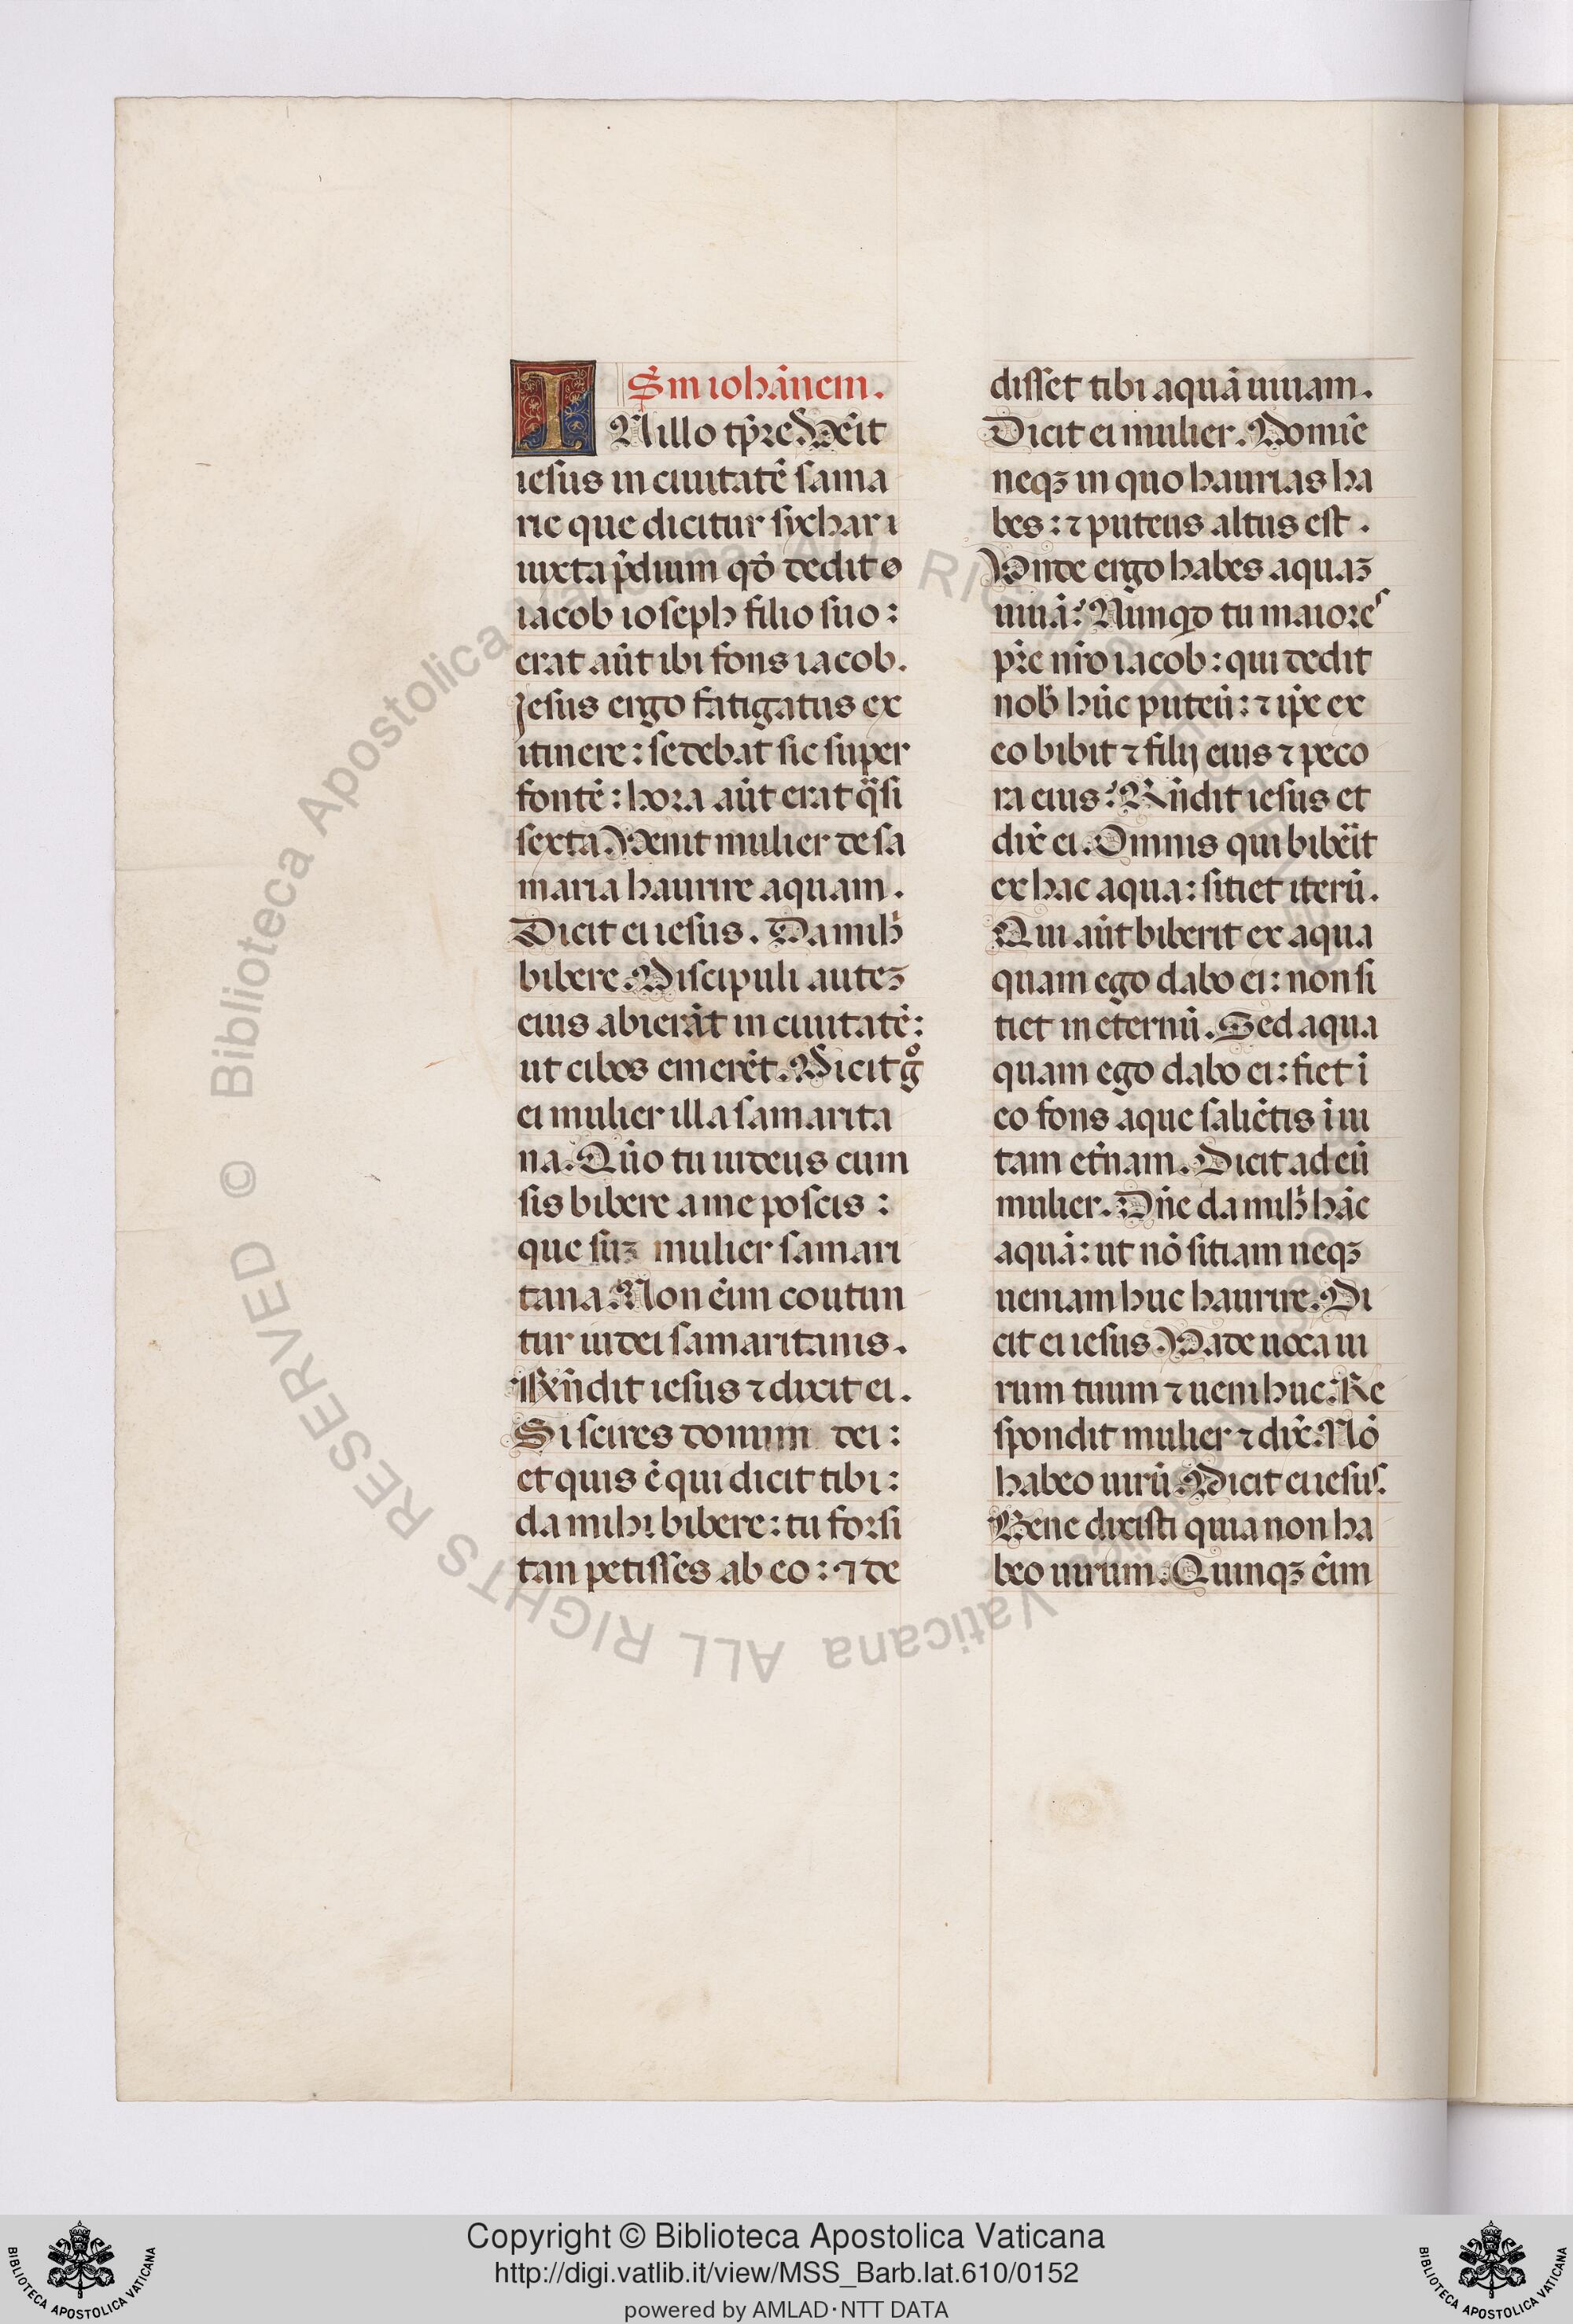 S̄m ioha̅nem.
IN illo tp̄re. Ve̅it
iesus in ciuitatē sama
rie que dicitur sychar i
iuxta p̄dium qd̄ dedit
iacob ioseph filio suo:
erat aūt ibi fons iacob.
Jesus ergo fatigatus ex
itinere: sedebat sic super
fontē: hora aūt erat q̄si
sexta. Venit mulier de sa
maria haurire aquam.
Dicit ei iesus. Da mih̄
bibere. Discipuli auteꝫ
eius abierāt in ciuitatē:
ut cibos emerēt. Dicit gͦ
ei mulier illa samarita
na. Qūo tu iudeus cum
sis bibere a me poscis:
que suꝫ mulier samari
tana. Non ēim coutun
tur iudei samaritanis.
Rn̄dit iesus ⁊ dixit ei.
Si scires donum dei:
et quis ē qui dicit tibi:
da mihi bibere: tu forsi
tan petisses ab eo: ⁊ de
disset tibi aquā uiuam.
Dicit ei mulier. Domīe
neqꝫ in quo haurias ha
bes: ⁊ puteus altus est.
Unde ergo habes aquaꝫ
uiuā? Nunqd tu maior es
pr̄e nr̄o iacob: qui dedit
nob̄ hūc puteū: ⁊ ip̄e ex
eo bibit ⁊ filij eius ⁊ peco
ra eius? Rn̄dit iesus et
dix̄ ei. Omnis qui bibe̅it
ex hac aqua: sitiet iterū.
Qui aūt biberit ex aqua
quam ego dabo ei: non si
tiet in eternū. Sed aqua
quam ego dabo ei: fiet ī
eo fons aque saliētis ī ui
tam et̄nam. Dicit ad eū
mulier. Dn̄e da mih̄ hāc
aquā: ut nō sitiam neqꝫ
ueniam huc haurire. Di
cit ei iesus. Vade uoca ui
rum tuum ⁊ ueni huc. Re
spondit mulier ⁊ dix̄. Nō
habeo uirū. Dicit ei iesus.
Bene dixisti quia non ha
beo uirum. Quinqꝫ ēim
© Biblioteca Apostolica Vaticana ALL RIGHTS RESERVED
BIBLIOTECA APOSTOLICA VATICANA
Copyright © Biblioteca Apostolica Vaticana
http://digi.vatlib.it/view/MSS_Barb.lat.610/0152
powered by AMLAD·NTT DATA
BIBLIOTECA APOSTOLICA VATICANA